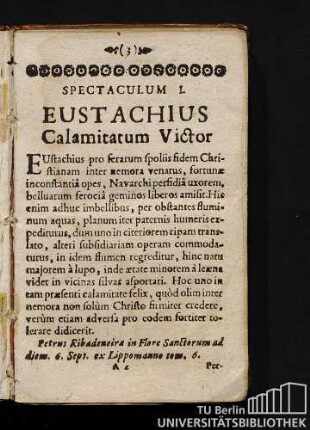 (3)
SPECTACULUM I.
EUSTACHIUS
Calamitatum Victor
EUstachius pro ferarum spoliis fidem Chri-
stianam inter nemora venatus, fortunæ
inconstantiâ opes, Navarchi perfidiâ uxorem,
belluarum ferociâ geminos liberos amisit. His
enim adhuc imbellibus, per obstantes flumi-
num aquas, planum iter paternis humeris ex-
pediturus, dum uno in citeriorem ripam trans-
lato, alteri subsidiariam operam commoda-
turus, in idem flumen regreditur, hinc natu
majorem à lupo, inde ætate minorem à leæna
videt in vicinas silvas asportari. Hoc uno in
tam præsenti calamitate felix, quòd olim inter
nemora non solùm Christo firmiter credere,
verùm etiam adversa pro eodem fortiter to-
lerare didicerit.
Petrus Ribadeneira in Flore Sanctorum ad
diem. 6. Sept. ex Lippomanno tom. 6.
A 2 Per-
TU Berlin
UNIVERSITÄTSBIBLIOTHEK